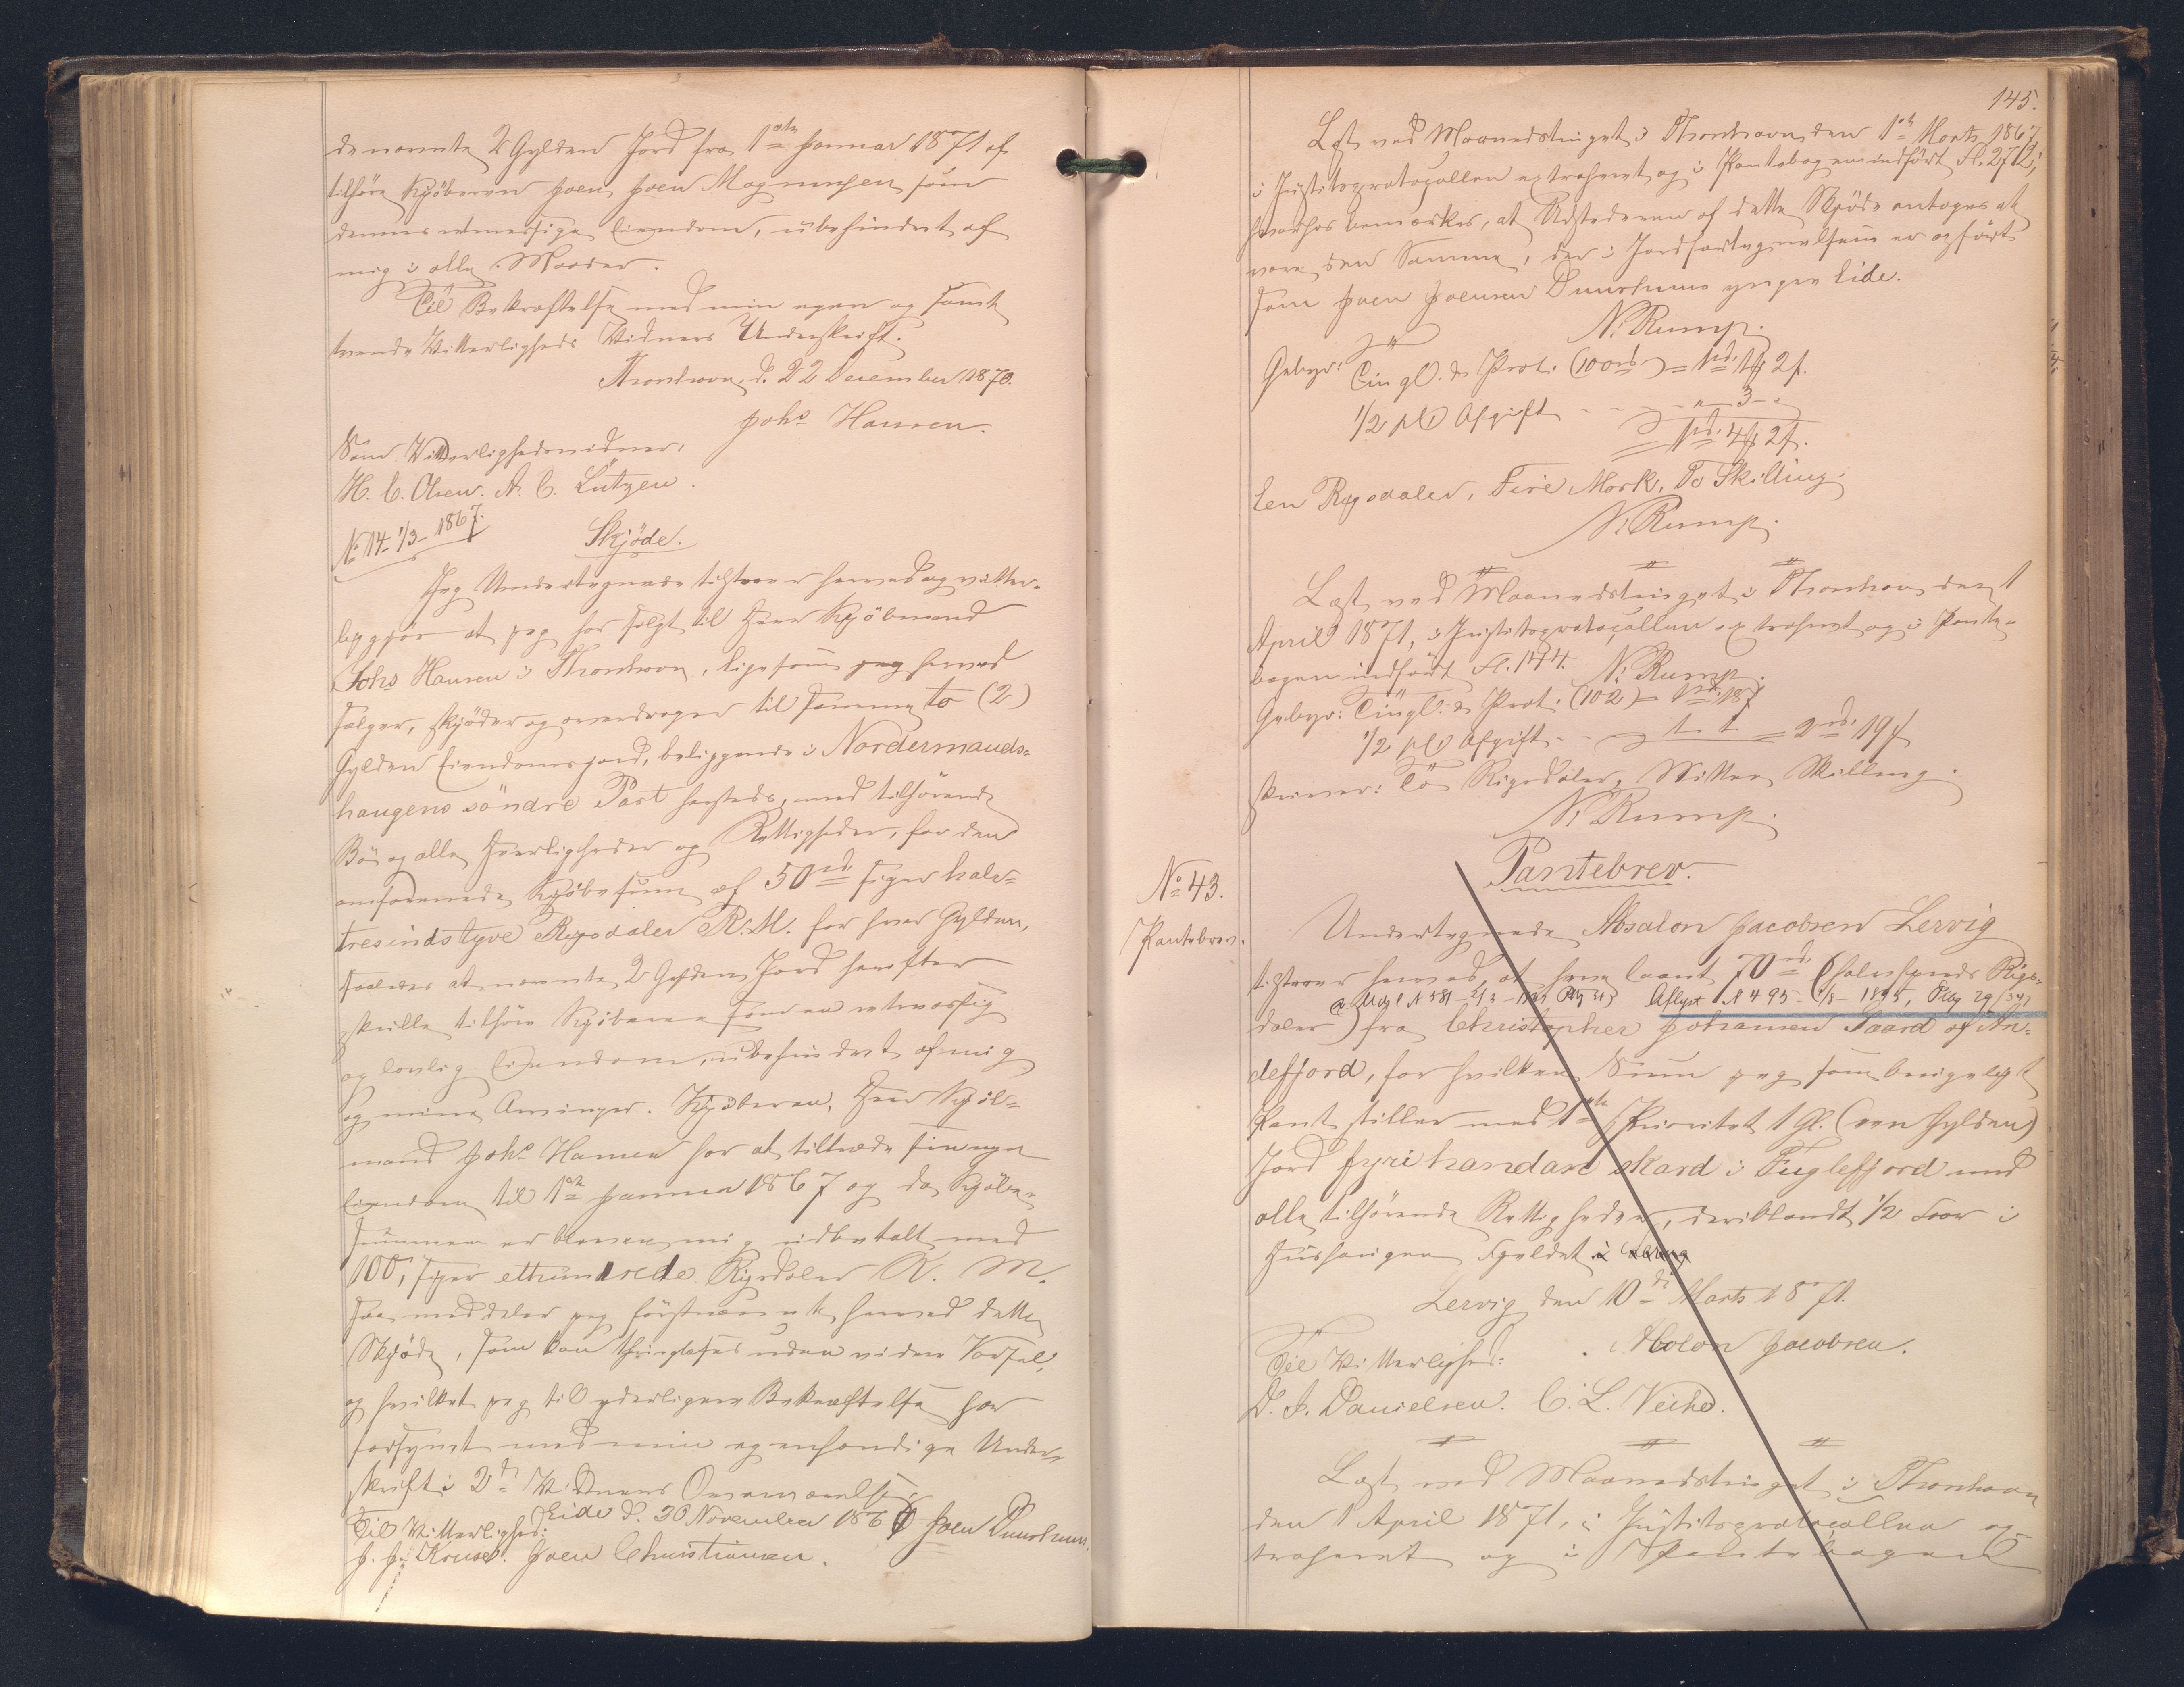 de nævnte 2 Gylden Jord fra 1ste Januar 1871 at
tilhøre Kjøberen Joen Joen Magnussen som
dennes retmæssige Eiendom, ubehindret af
mig i alle Maader.
Til Bekræftelse med min egen og samt
tvende Vitterligheds Vidners Underskrift.
Thorshavn, d. 22 December 1870.
Johs Hansen.
Som Vitterlighedsvidner:
H. C. Olsen. A. C. Lützen.
No 14 - 1/3 - 1867.
Skjöde.
Jeg Undertegnede tilstaaer herved og vitter-
liggjør at jeg har solgt til Herr Kjöbmand
Johs Hansen i Thorshavn, ligesom jeg herved
sælger, skjöder og overdrager til samme to (2)
Gylden Eiendomsjord, beliggende i Nordermands-
haugens söndre Part hersteds, med tilhörende
Bö og alle Herligheder og Rettigheder, for den
omforenede Kjöbesum af 50 rd siger halv-
tresindstyve Rigsdaler R. M. for hver Gylden,
saaledes at nævnte 2 Gylden Jord herefter
skulle tilhöre Kjöberen som en retmæssig
og lovlig Eiendom, ubehindret af mig
og mine Arvinger. Kjöberen, Herr Kjöb-
mand Johs Hansen har at tiltræde sin nye
Eiendom til 1ste Januar 1867 og da Kjöbe-
summen er bleven mig udbetalt med
100, siger ethundrede Rigsdaler R. M.
saa meddeler jeg herved dette
Skjöde, som kan thinglæses uden videre Varsel,
og hvilket jeg til yderligere Bekræftelse har
forsynet med min egenhændige Under-
skrift i 2de Vidners Overværelse.
Eide d. 30 November 1866 Joen Duurhuus.
Til Vitterlighed:
J. J. Kruse. Joen Christiansen.
145.
Læst ved Maanedstinget i Thorshavn den 1ste Marts 1867,
i Justitsprotocollen extraheret og i Pantebogen indført Fl. 272;
hvorhos bemærkes, at Udstederen af dette Skjöde antages at
være den Samme, der i Jordfortegnelsen er opfört
som Joen Joensen Duurhuus yngre Eide.
N. Rump.
Gebyr: Tingl. & Prot. (100 rd) = 1 rd 1 ℳ 2 ß.
1/2 pCt Afgift - - - " 3 - "
= 1 rd. 4 ℳ 2 ß.
Een Rigsdaler, Fire Mark, To Skilling.
N. Rump.
Læst ved Maanedstinget i Thorshavn den 1
April 1871, i Justitsprotocollen extraheret og i Pante-
bogen indfört Fl. 144. N. Rump.
Gebyr: Tingl. & Prot. (102) = 1 rd. 18 ß
1/2 pCt Afgift - - 1 " 1 = 2 rd. 19 ß
skriver: To Rigsdaler, Nitten Skilling.
N. Rump.
Pantebrev.
No 43.
Pantebrev.
Undertegnede Absalon Jacobsen Lervig
tilstaaer herved, at have laant 70 rd (halvfjerds Rigs-
Aflyst N 495 - 1/8 - 1895,
daler) fra Christopher Johannesen Taard af An-
defjord, for hvilken Sum jeg som beviseligt
Pant stiller med 1ste Prioritet 1 Gl. (een Gylden)
Jord fyri handan skard i Fuglefjord med
alle tilhörende Rettigheder, deriblandt 1/2 Faar i
Huushaugen Fjeldet i Lervig
Lervig den 10de Marts 1871.
Absalon Jacobsen.
Til Vitterlighed:
D. J. Danielsen. C. L. Veihe.
Læst ved Maanedstinget i Thorshavn
den 1 April 1871, i Justitsprotocollen ex-
traheret og i Pantebogen